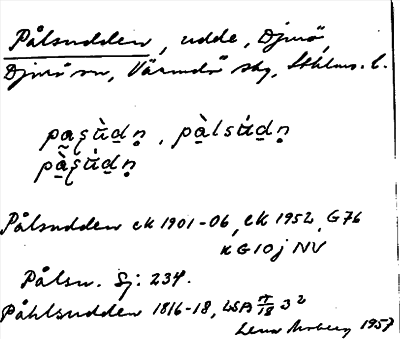 Pålsudden, udde, Djurö,
Djurö sn, Värmdö skg, Sthlms. l.
pa̰ʂùdn̥, pàlsúdn̥
pàʂúdn̥
Pålsudden ek 1901-06, ek 1952, G76
k G10j NV
Pålsu. Sj: 234.
Påhlsudden 1816-18, LSA 3²
1957